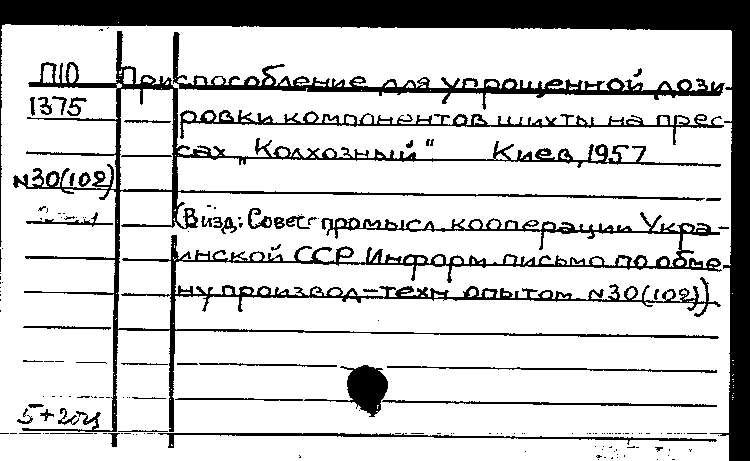 П10
Приспособление для упрощенной дози-
1375
ровки компонентов шихты на прес-
сах „Колхозный" Киев, 1957
N30(102)
(В изд: Совет промысл. кооперации Укра-
инской ССР Информ. письмо по обме-
ну производ-техн опытом N30(102))